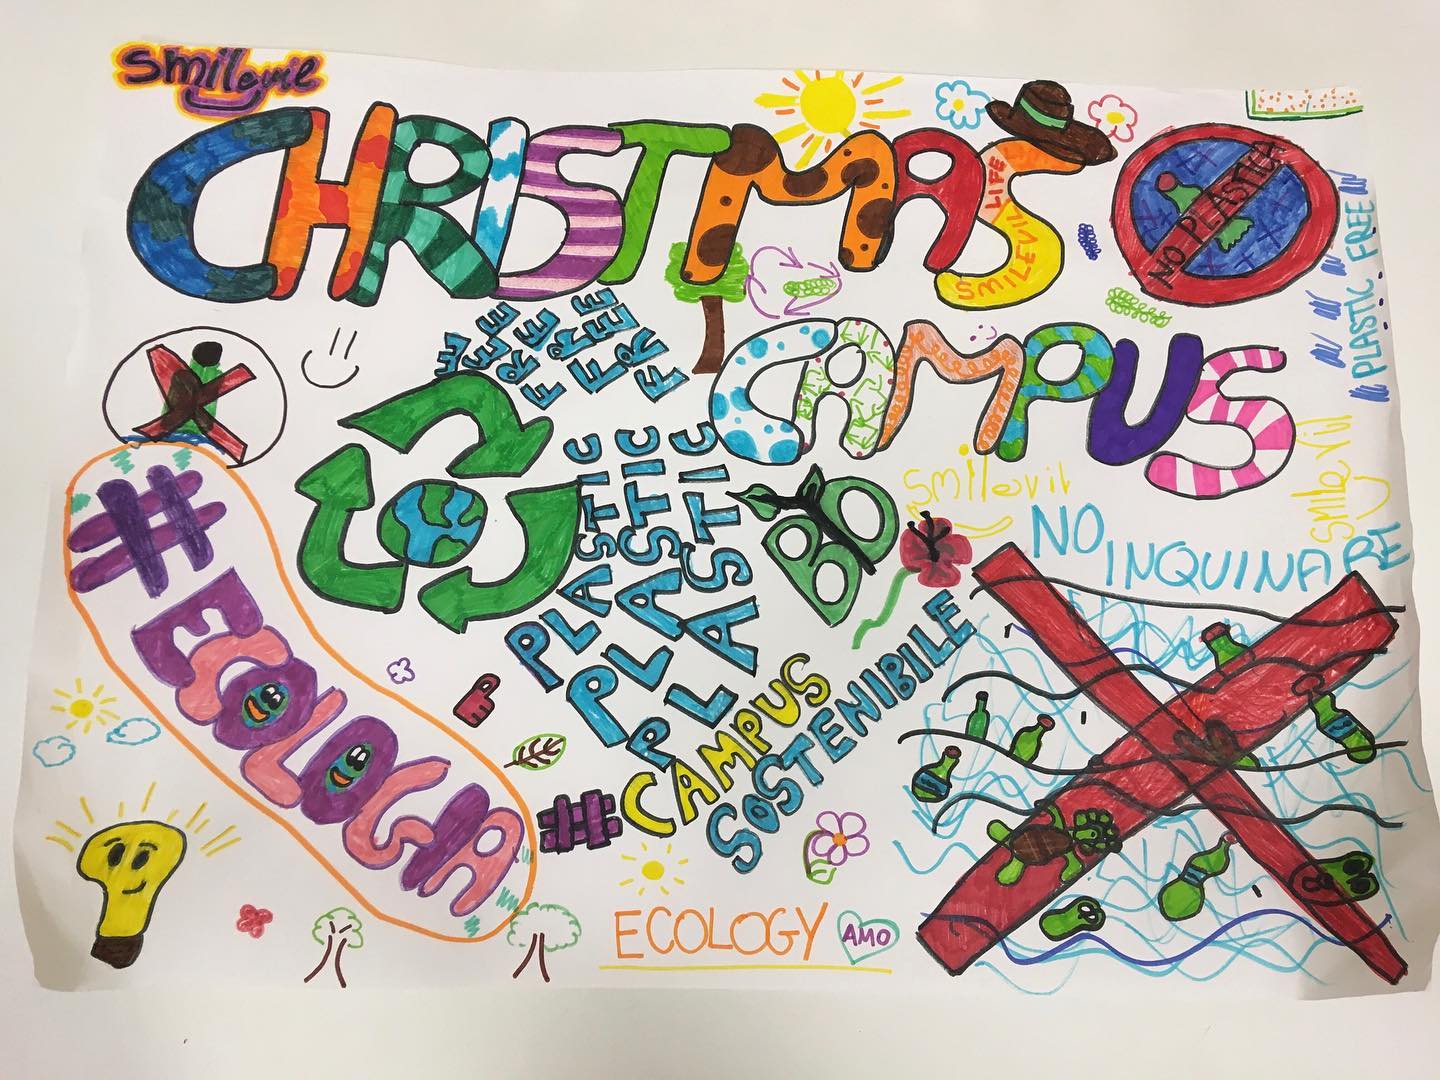 Smilevil
CHRISTMAS
LIFE
SMILEVIL
NO PLASTICA
PLASTIC FREE
CAMPUS
FREE
FREE
FREE
PLASTIC
PLASTIC
PLASTIC
BIO
Smilevil
Smilevil
NO INQUINARE
#ECOLOGIA
#CAMPUS
SOSTENIBILE
ECOLOGY
AMO